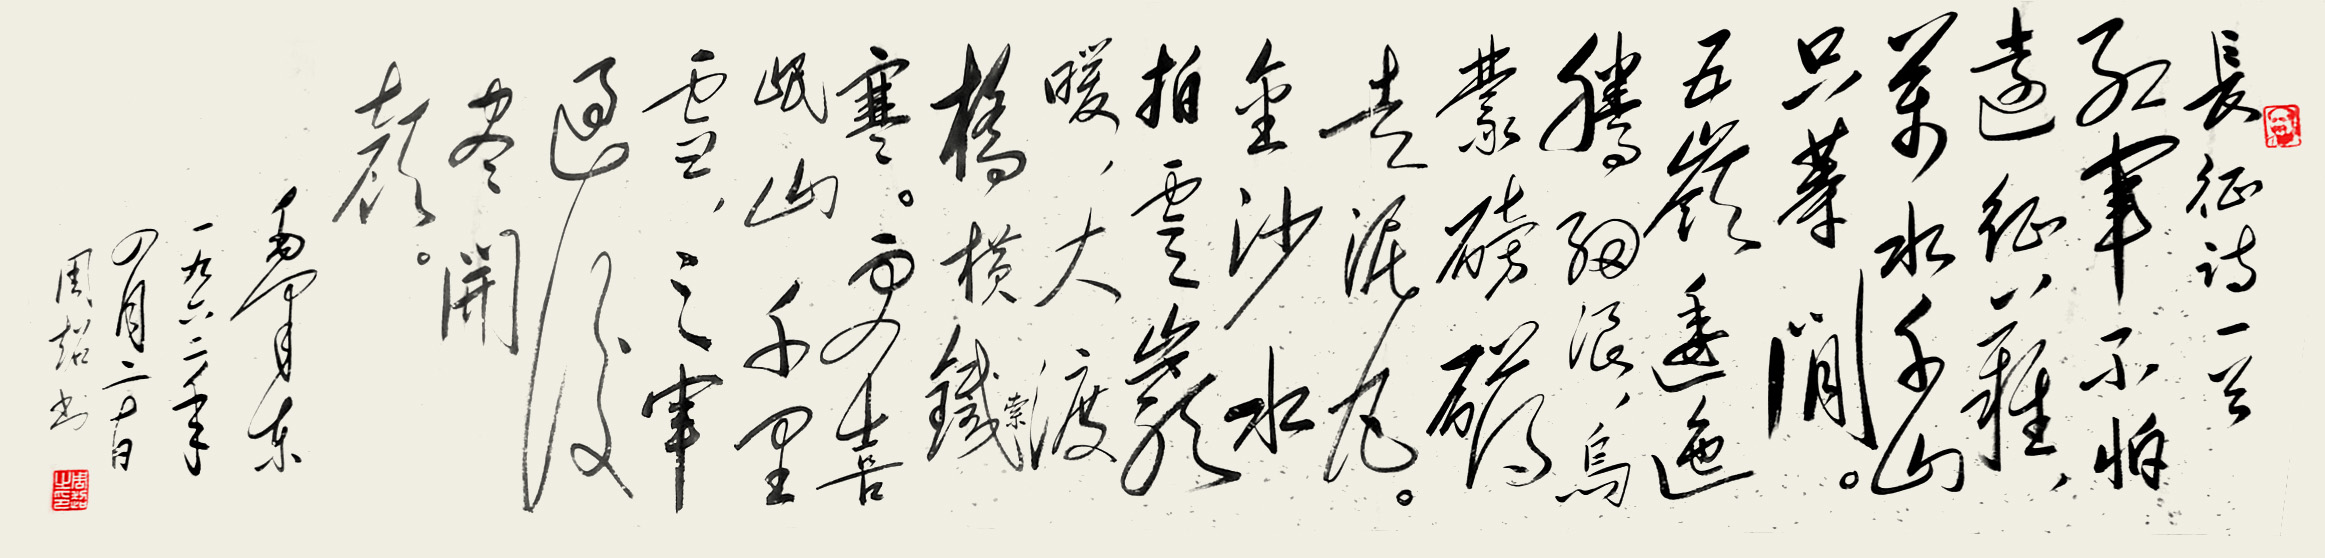 長征诗一首
红軍不怕
遠征難，
萬水千山
只等閒。
五嶺逶迤
腾细浪，烏
蒙磅礴
走泥丸。
金沙水
拍雲巖
暖，大渡
橋横鐵索
寒。更喜
岷山千里
雪，三軍
過後
尽開
顏。
毛澤东
一九六二年
四月二十日
周超书
周超之印